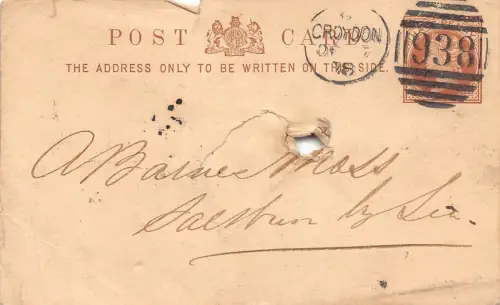 POST CARD
THE ADDRESS ONLY TO BE WRITTEN ON THIS SIDE.
CROYDON
938
A Barnes Moss
by Sea